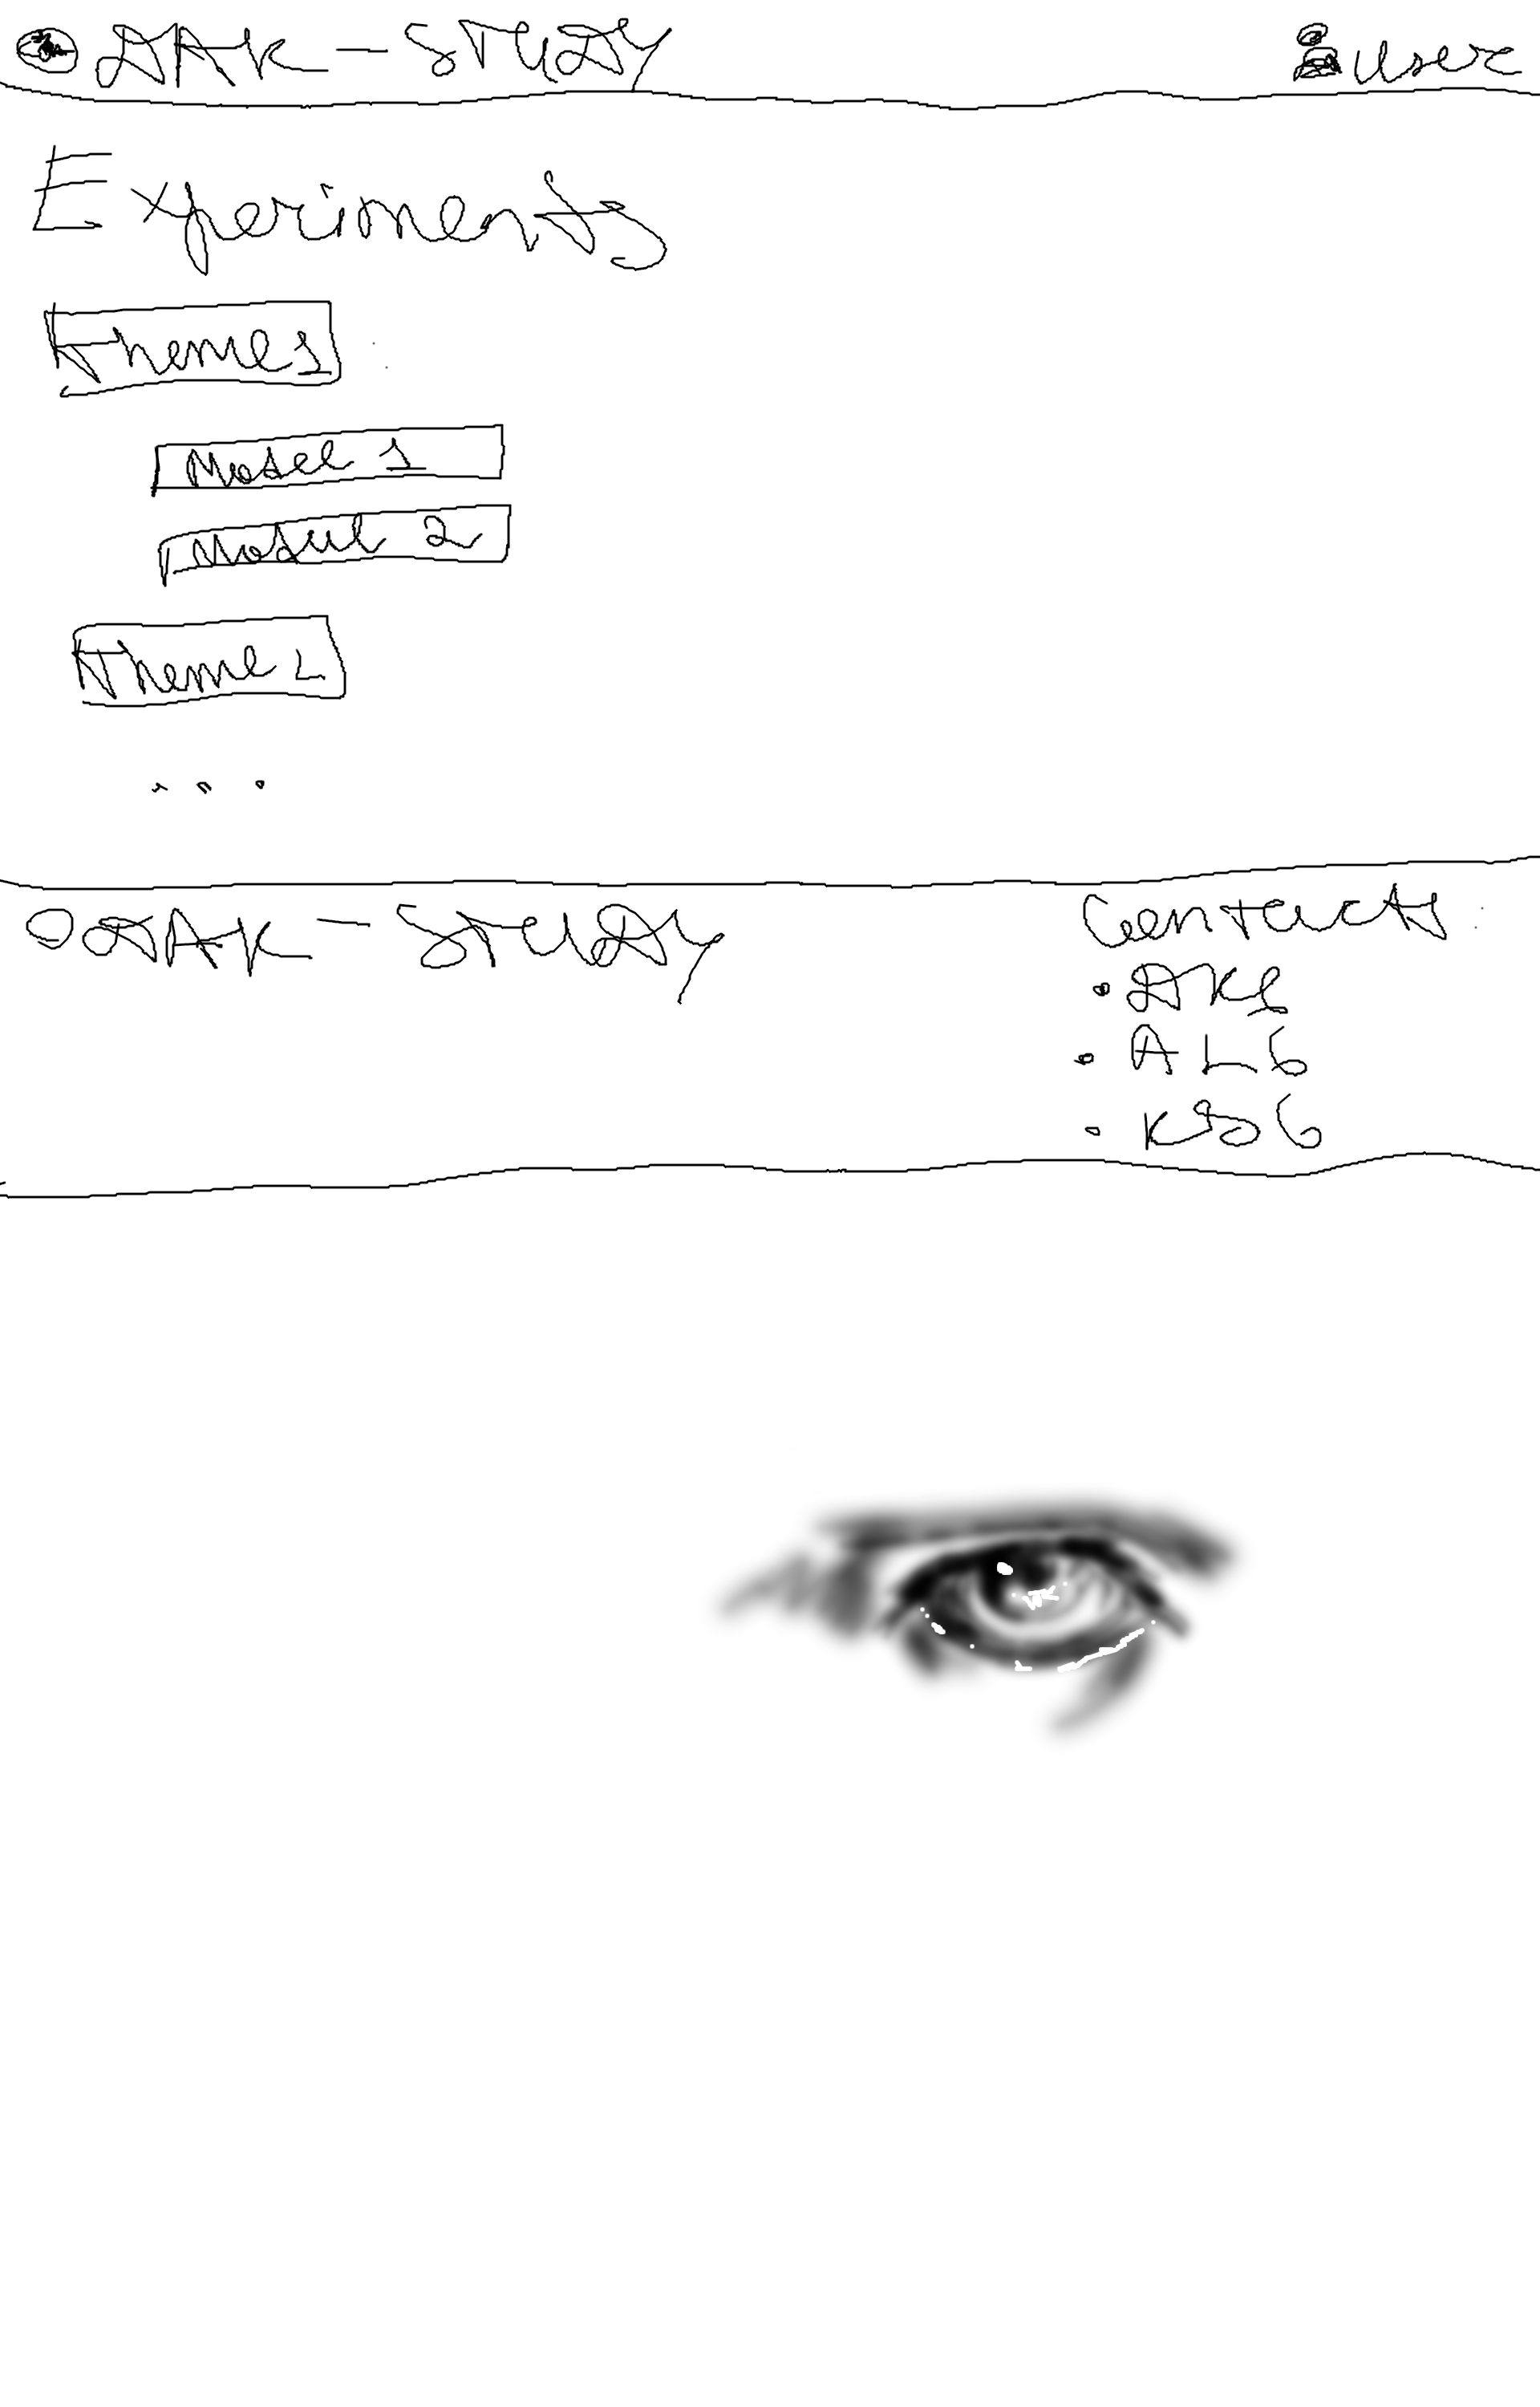 DAK - STUDY
user
Experiments
Theme 1
Model 1
Model 2
Theme 2
...
DAK - STUDY
Contacts
• ALG
• KSG